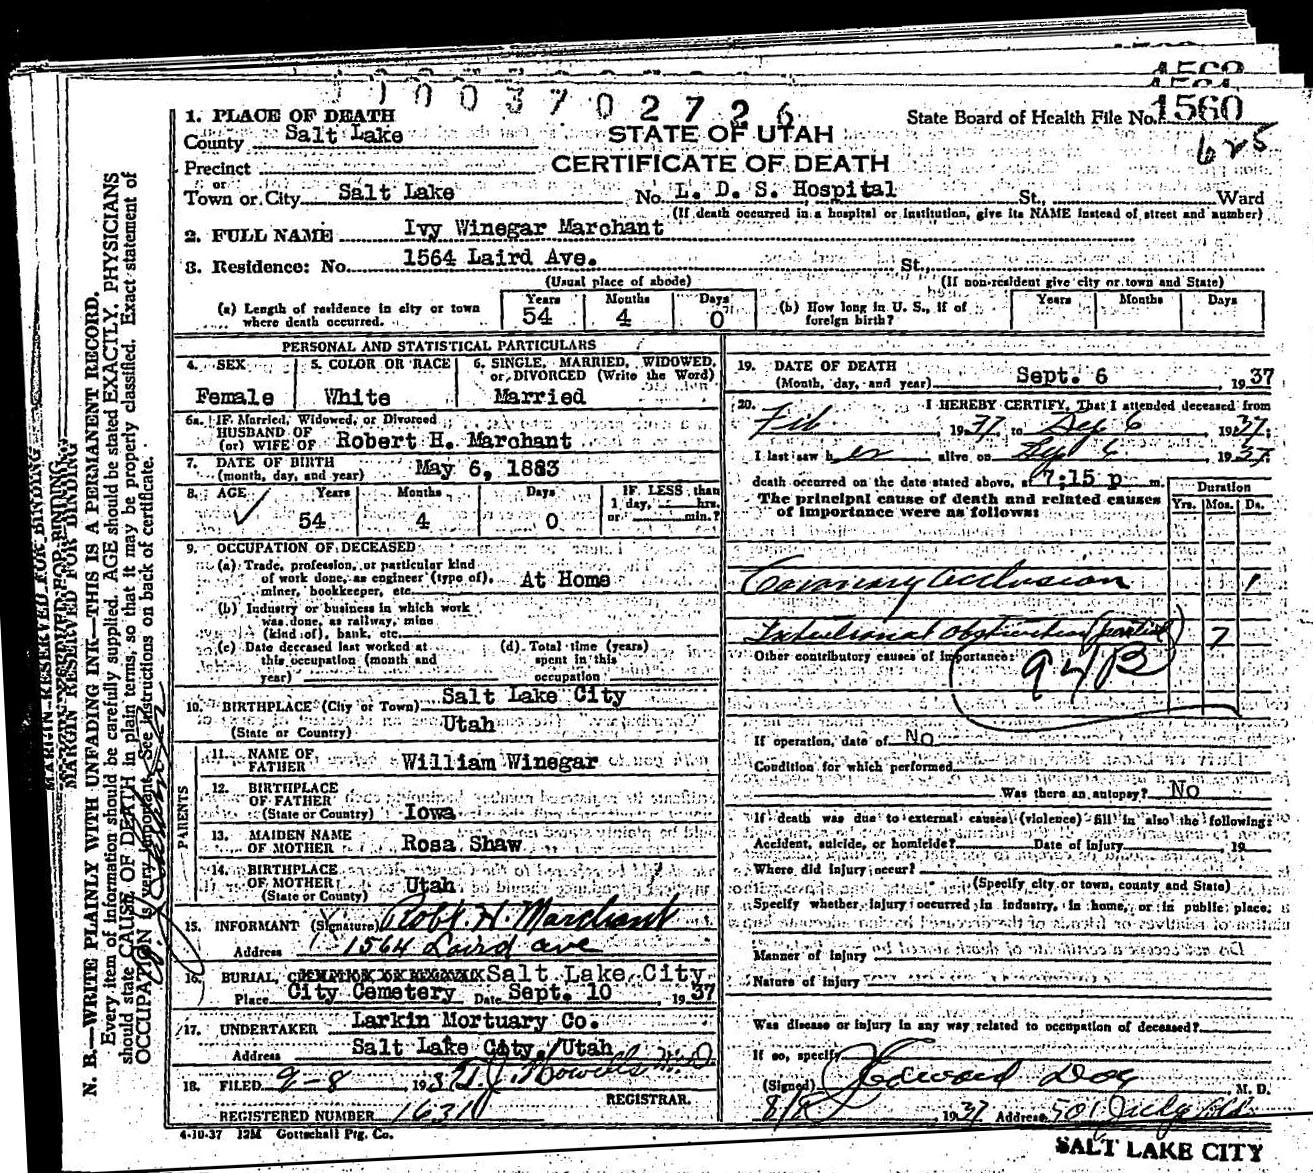 1003702726
1. PLACE OF DEATH
County Salt Lake
STATE OF UTAH
State Board of Health File No. 1560
625
Precinct
CERTIFICATE OF DEATH
or
Town or City Salt Lake No. L. D. S. Hospital St., Ward
(If death occurred in a hospital or institution, give its NAME instead of street and number)
2. FULL NAME Ivy Winegar Marchant
3. Residence: No. 1564 Laird Ave. St.,
(Usual place of abode) (If non-resident give city or town and State)
(a) Length of residence in city or town where death occurred. Years 54 Months 4 Days 0
(b) How long in U. S., if of foreign birth? Years Months Days
PERSONAL AND STATISTICAL PARTICULARS
4. SEX Female
5. COLOR OR RACE White
6. SINGLE, MARRIED, WIDOWED, or DIVORCED (Write the Word) Married
6a. IF Married, Widowed, or Divorced
HUSBAND OF
(or) WIFE OF Robert H. Marchant
7. DATE OF BIRTH
(month, day, and year) May 6, 1883
8. AGE Years 54 Months 4 Days 0 IF LESS than 1 day, hrs. or min.?
9. OCCUPATION OF DECEASED
(a) Trade, profession, or particular kind
of work done, as engineer (type of),
miner, bookkeeper, etc. At Home
(b) Industry or business in which work
was done, as railway, mine
(kind of), bank, etc.
(c) Date deceased last worked at
this occupation (month and
year)
(d) Total time (years)
spent in this
occupation
10. BIRTHPLACE (City or Town) Salt Lake City
(State or Country) Utah
PARENTS
11. NAME OF
FATHER William Winegar
12. BIRTHPLACE
OF FATHER
(State or Country) Iowa
13. MAIDEN NAME
OF MOTHER Rosa Shaw
14. BIRTHPLACE
OF MOTHER
(State or Country) Utah
15. INFORMANT (Signature) Robt. H. Marchant
Address 1564 Laird ave
16. BURIAL, Salt Lake City
Place City Cemetery Date Sept. 10, 1937
17. UNDERTAKER Larkin Mortuary Co.
Address Salt Lake City, Utah
18. FILED 9-8 1937
REGISTRAR.
REGISTERED NUMBER 1631
4-10-37 12M Gottschall Ptg. Co.
19. DATE OF DEATH
(Month, day, and year) Sept. 6, 1937
20. I HEREBY CERTIFY, That I attended deceased from
Feb 1937 to Sep 6 1937;
I last saw her alive on Sep 6 1937;
death occurred on the date stated above, at 7:15 p m.
The principal cause of death and related causes
of importance were as follows:
Duration
Yrs. Mos. Ds.
Coronary Occlusion 1
Intestinal Obstruction (partial) 7
Other contributory causes of importance:
94B
If operation, date of No
Condition for which performed
Was there an autopsy? No
If death was due to external causes (violence) fill in also the following:
Accident, suicide, or homicide? Date of injury , 19
Where did injury occur?
(Specify city or town, county and State)
Specify whether injury occurred in industry, in home, or in public place.
Manner of injury
Nature of injury
Was disease or injury in any way related to occupation of deceased?
If so, specify
(Signed) M. D.
1937 Address
SALT LAKE CITY
MARGIN RESERVED FOR BINDING
N. B.—WRITE PLAINLY WITH UNFADING INK—THIS IS A PERMANENT RECORD.
Every item of information should be carefully supplied. AGE should be stated EXACTLY. PHYSICIANS
should state CAUSE OF DEATH in plain terms, so that it may be properly classified. Exact statement of
OCCUPATION is very important. See instructions on back of certificate.